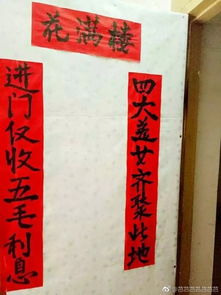 花满楼
四大美女齐聚此地
进门仅收五毛利息